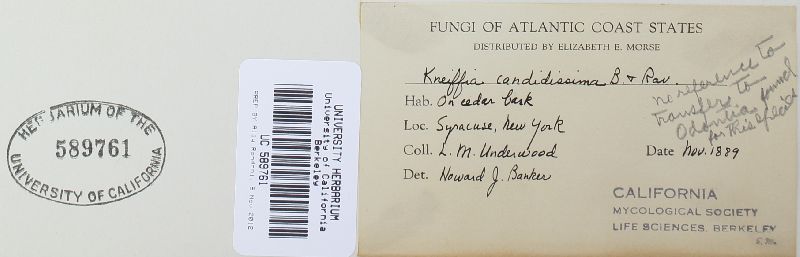 HERBARIUM OF THE
589761
UNIVERSITY OF CALIFORNIA
UNIVERSITY HERBARIUM
University of California
Berkeley
UC 589761
FUNGI OF ATLANTIC COAST STATES
DISTRIBUTED BY ELIZABETH E. MORSE
Kneiffia candidissima B & Rav.
Hab. On cedar bark
Loc. Syracuse, New York
Coll. L. M. Underwood
Date Nov. 1889
Det. Howard J. Banker
no reference to
transfer to
Odontia found
for this species
CALIFORNIA
MYCOLOGICAL SOCIETY
LIFE SCIENCES, BERKELEY
E.M.